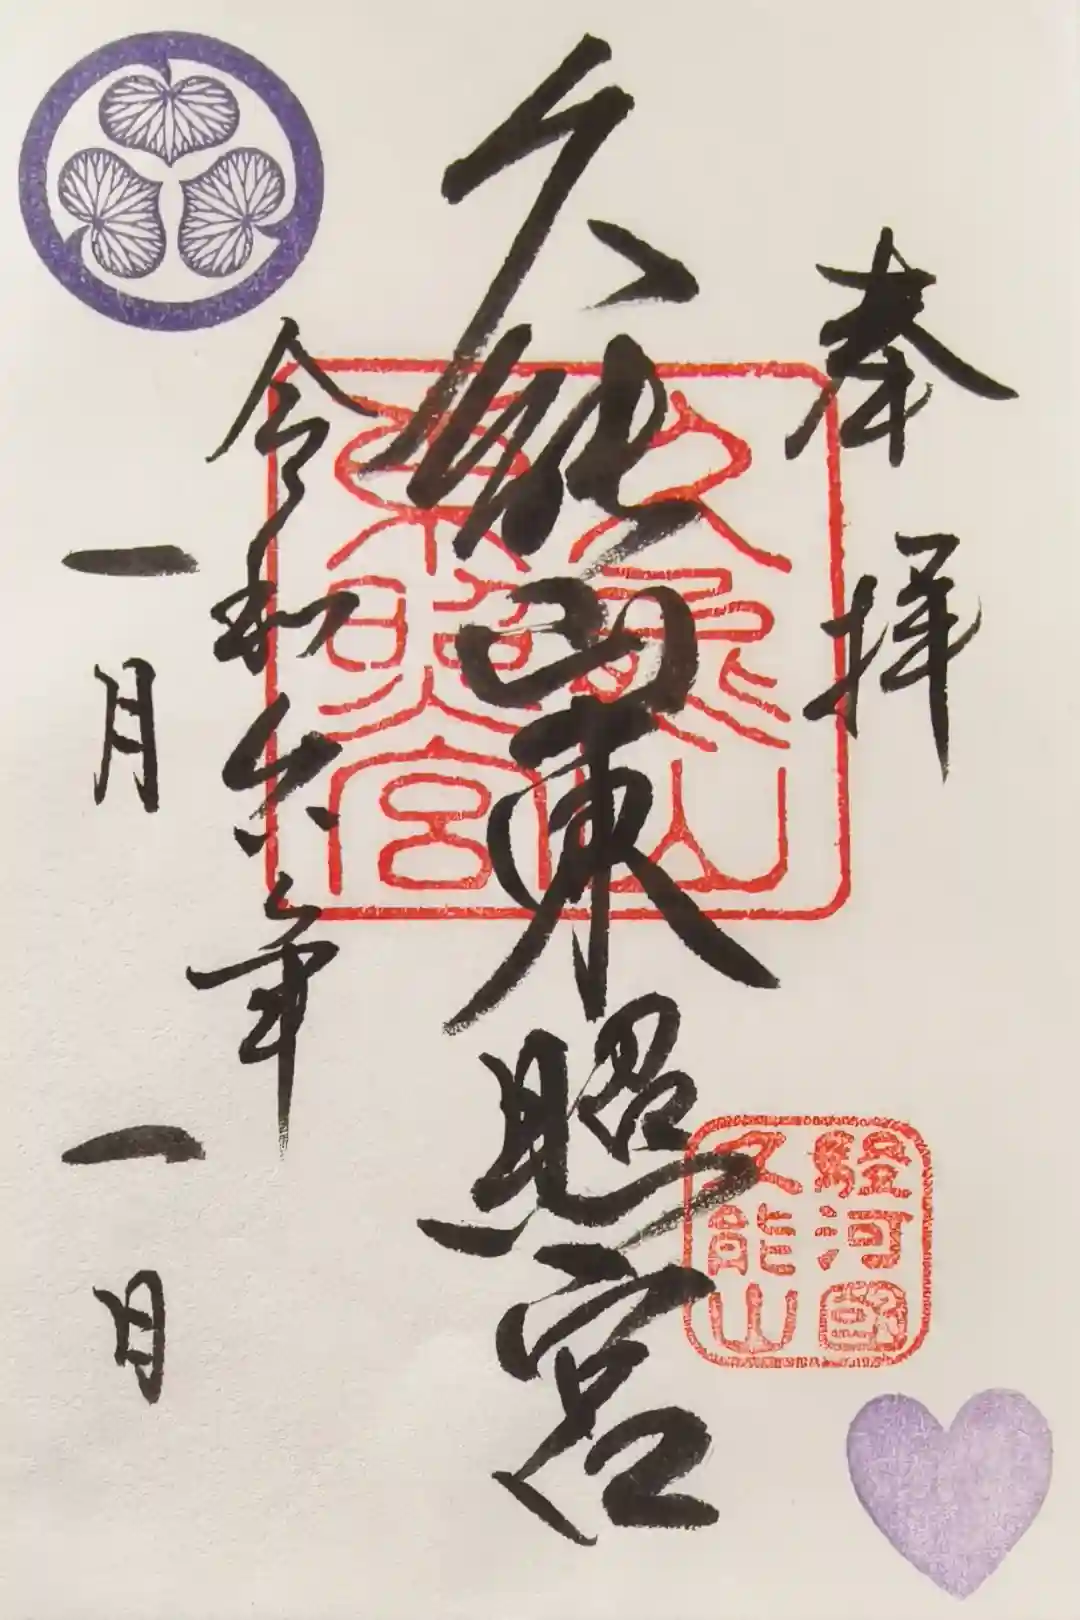 奉拝
久能山東照宮
久能山東照宮
駿河國
久能山
令和六年
一月一日